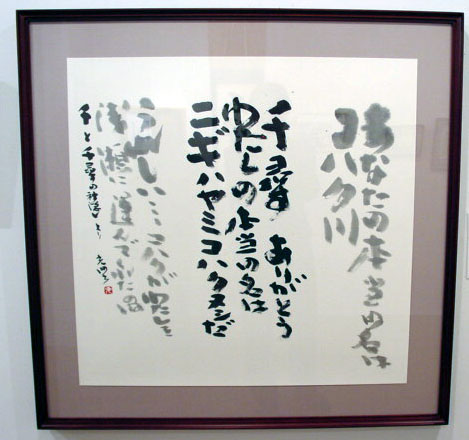 あなたの本当の名は
コハク川
千尋 ありがとう
わたしの本当の名は
ニギハヤミコハクヌシだ
うれしい… コハクがわたしを
浅瀬に運んでくれたのね
千と千尋の神隠しより